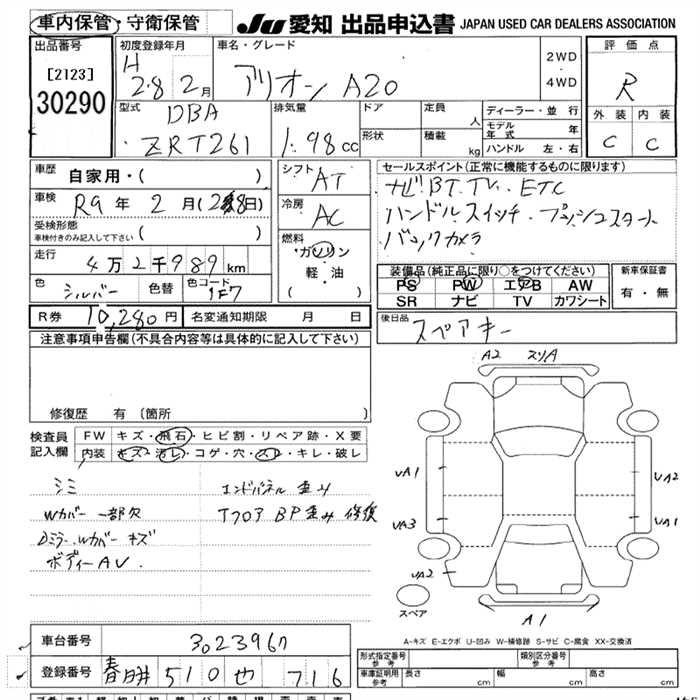 車内保管・守衛保管 JU 愛知 出品申込書 JAPAN USED CAR DEALERS ASSOCIATION
出品番号 [2123] 30290
初度登録年月 H 28 2月
車名・グレード アリオン A20
2WD
4WD
評価点 R
外装 内装
C C
型式 DBA ZRT261
排気量 1.98cc
ドア 形状
定員 人
積載 kg
ディーラー・並行
モデル年式 年
ハンドル 左・右
車歴 自家用・( )
車検 R9年2月(28日)
受検形態 車検付きのみ記入して下さい ( )
走行 4万2千989km
色 シルバー 色替 色コード 1F7
シフト AT
冷房 AC
燃料 ガソリン
軽・油
( )
セールスポイント(正常に機能するものに限ります)
ナビ BT.TV. ETC
ハンドルスイッチ・プッシュスタート
バックカメラ
装備品(純正品に限り○をつけてください)
PS PW エアB AW
SR ナビ TV カワシート
新車保証書
有・無
R券 10,280円 名変通知期限 月 日
後日品 スペアキー
注意事項申告欄(不具合内容等は具体的に記入して下さい)
修復歴 有(箇所
検査員記入欄
FW キズ・飛石・ヒビ割・リペア跡・X要
内装 キズ・汚レ・コゲ・穴・スレ・キレ・破レ
シミ
Wカバー 一部欠
Dミラー.Wカバー キズ
ボディーAU.
エンドパネル 歪み
Tフロア BP歪み 修復
A2 スリA
UA1
UA2
UA3
UA1
UA2
スペア
A1
A-キズ E-エクボ U-凹み W-補修跡 S-サビ C-腐食 XX-交換済
車台番号 3023967
登録番号 春日井 510 せ 716
形式指定番号 参考
類別区分番号 参考
車庫証明用 参考 長さ cm 幅 cm 高さ cm